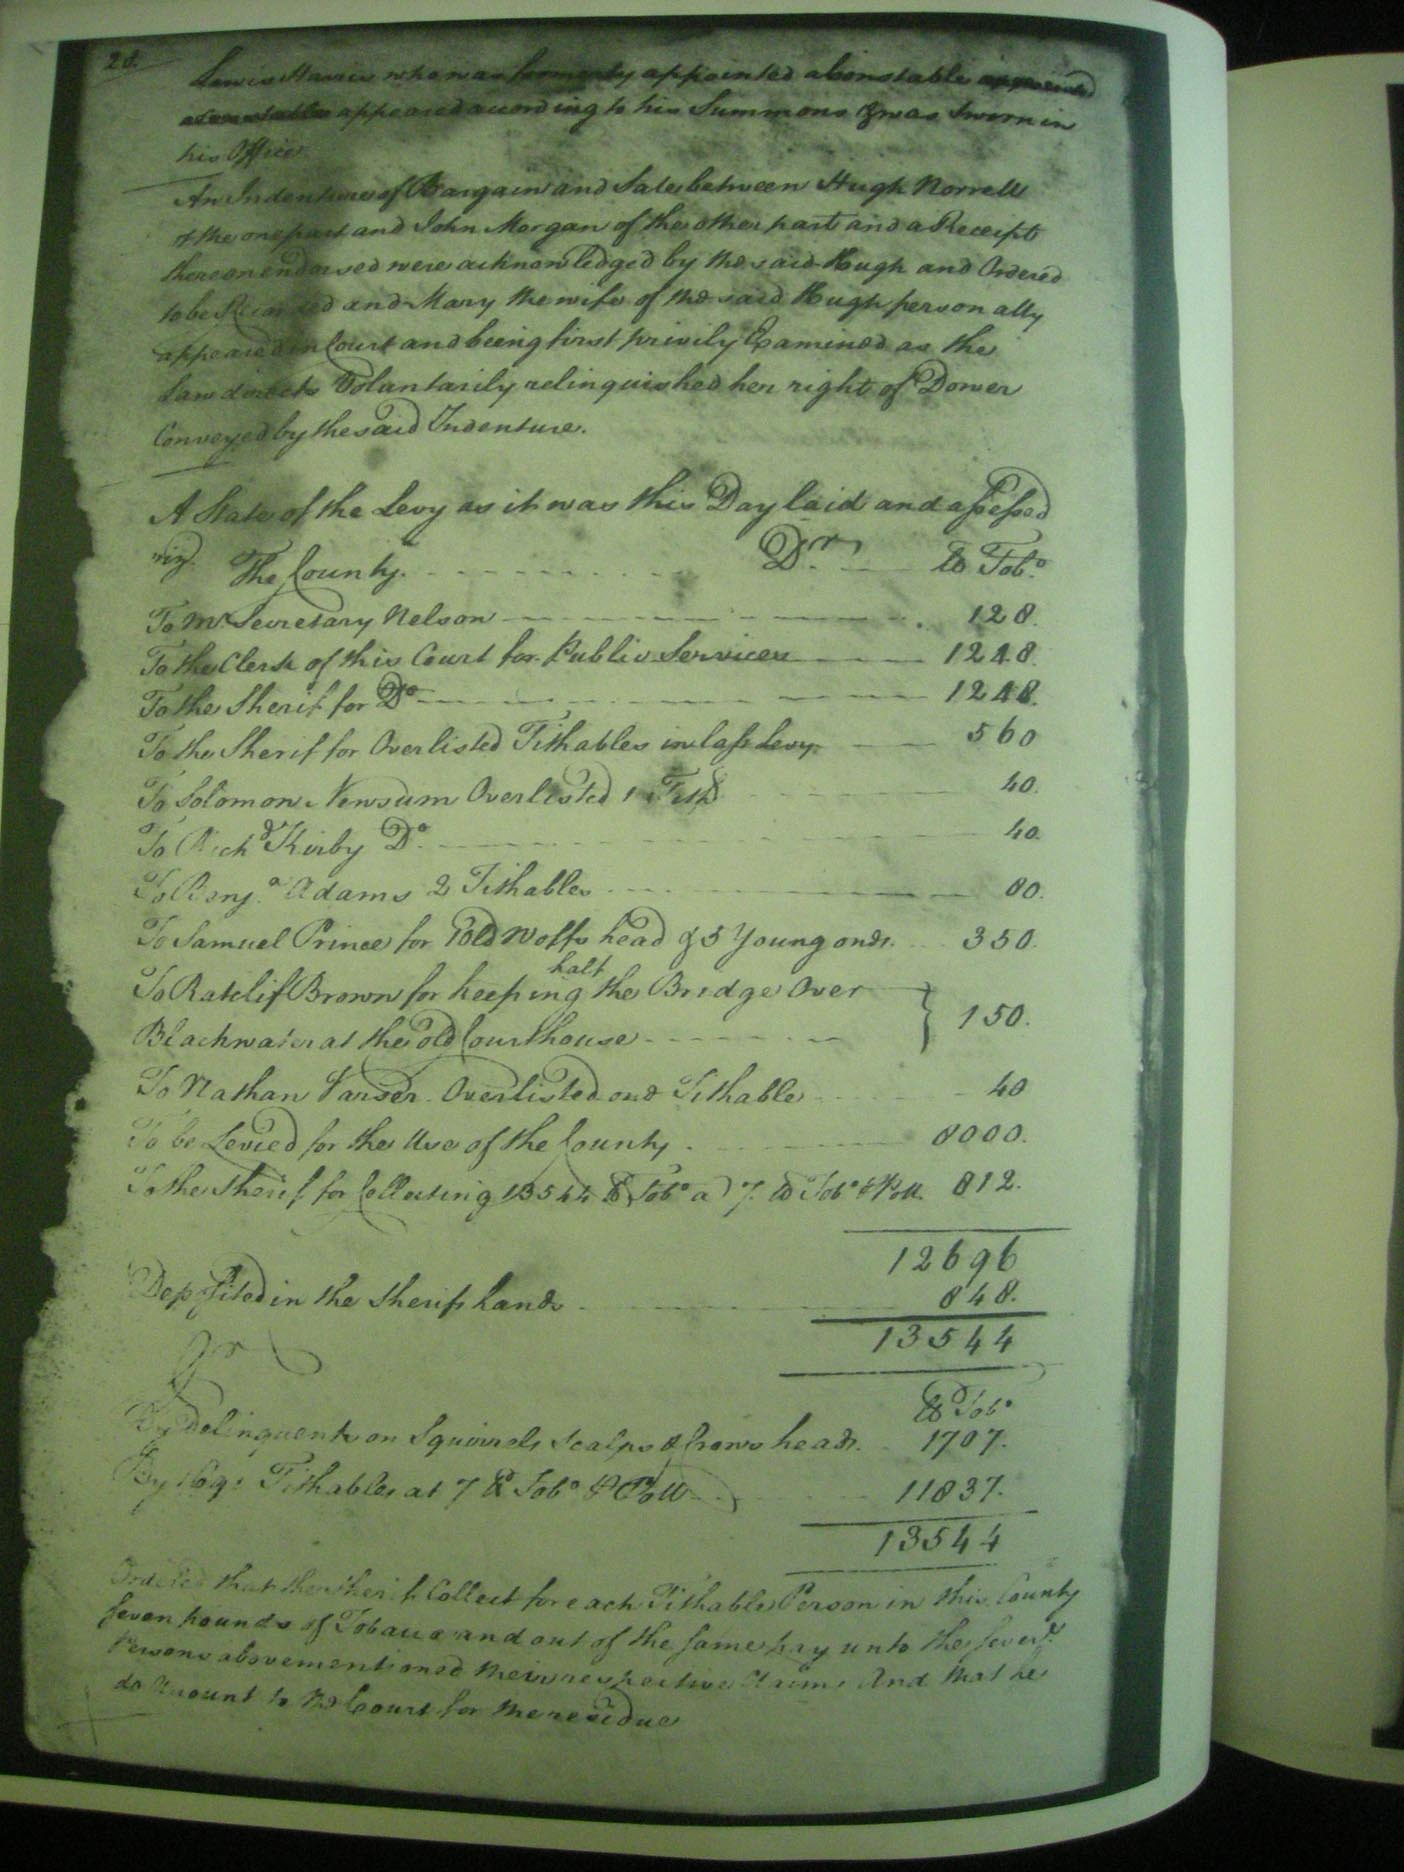 28.
Lewis Harris who was formerly appointed a Constable appointed
a Constable appeared according to his Summons & was Sworn in
his Office
An Indenture of Bargain and Sale between Hugh Norrell
of the one part and John Morgan of the other part and a Receipt
thereon endorsed were acknowledged by the said Hugh and Ordered
to be Recorded and Mary the wife of the said Hugh personally
appeared in Court and being first privily Examined as the
Law directs Voluntarily relinquished her right of Dower
Conveyed by the said Indenture.
A State of the Levy as it was this Day laid and assessed
viz. The County. Dr. lb Tobo.
To Mr Secretary Nelson 128.
To the Clerk of this Court for Public Services 1248.
To the Sherif for Do 1248.
To the Sherif for Overlisted Tithables in last Levy 560
To Solomon Newsum Overlisted 1 Tithd 40.
To Richd Kirby Do. 40.
To Benja. Adams 2 Tithables 80.
To Samuel Prince for 1 old Wolfs head & 5 Young ones. 350.
To Ratclif Brown for keeping half the Bridge Over
Blackwater at the old Courthouse } 150.
To Nathan Vasser Overlisted one Tithable 40
To be Levied for the Use of the County 8000.
To the Sherif for Collecting 13544 lb Tobo a 7. lb Tobo P Poll. 812.
12696
Deposited in the Sherifs hands 848.
13544
Cr
lb Tobo
By delinquents on Squirrels scalps & Crows heads. 1707.
By 1691 Tithables at 7 lb Tobo P Poll 11837.
13544
Ordered that the Sherif Collect for each Tithable Person in this County
Seven pounds of Tobacco and out of the same pay unto the severl.
Persons abovementioned their respective Claims And that he
do Account to the Court for the residue